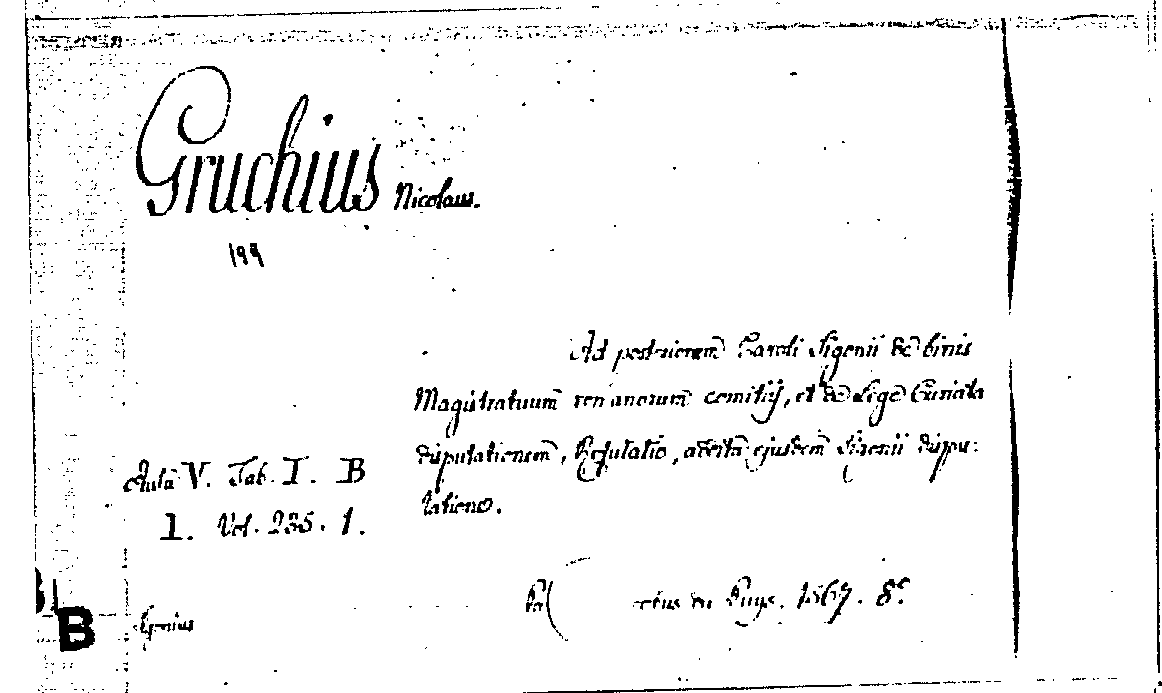 Gruchius Nicolaus.
199
Ad posteriorem Caroli Sigonii de binis
Magistratuum romanorum comitiis, et de Lege Curiata
disputationem, Refutatio, adertâ ejusdem Sigonii dispu:
tatione.
Aula V. Tab. I. B
1. Vol. 235. 1.
du Puys. 1567. 8º.
B